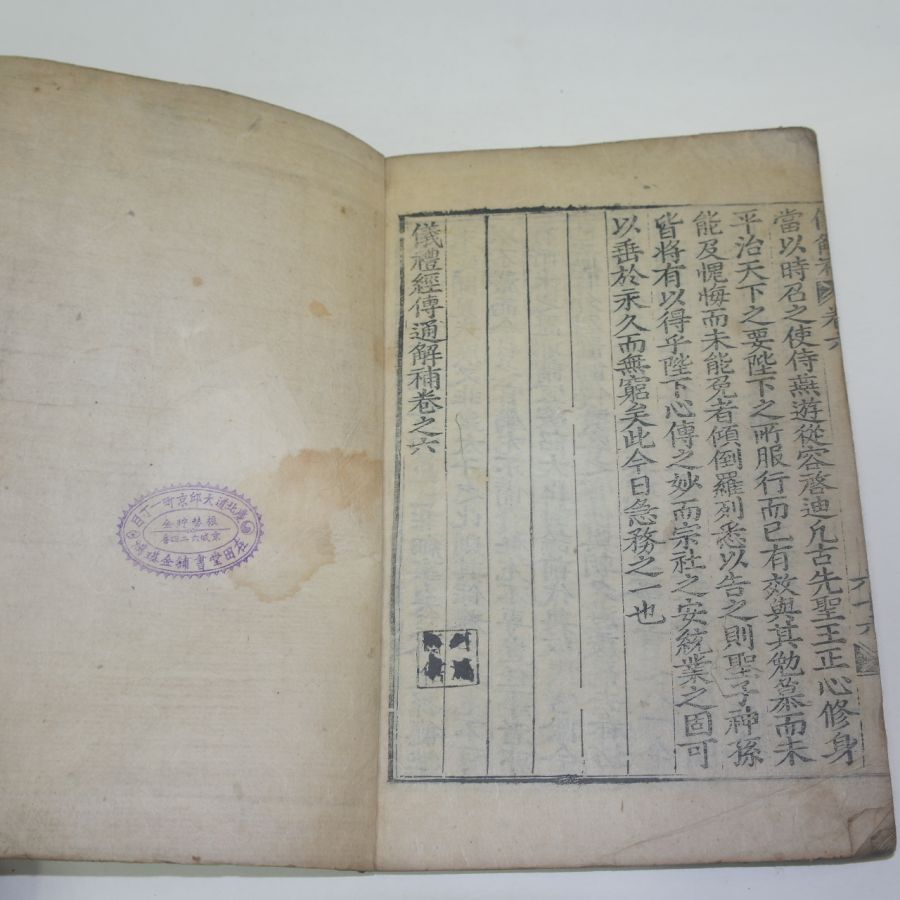 當以時召之使侍燕遊從容啓迪凡古先聖王正心修身
平治天下之要陛下之所服行而已有效與其勉慕而未
能及愧悔而未能免者傾倒羅列悉以告之則聖子神孫
皆將有以得乎陛下心傳之妙而宗社之安統業之固可
以垂於永久而無窮矣此今日急務之一也
儀禮經傳通解補卷之六
慶北道大邱京町一丁目
振替貯金
京城六二四番
在田堂書鋪金璂鴻